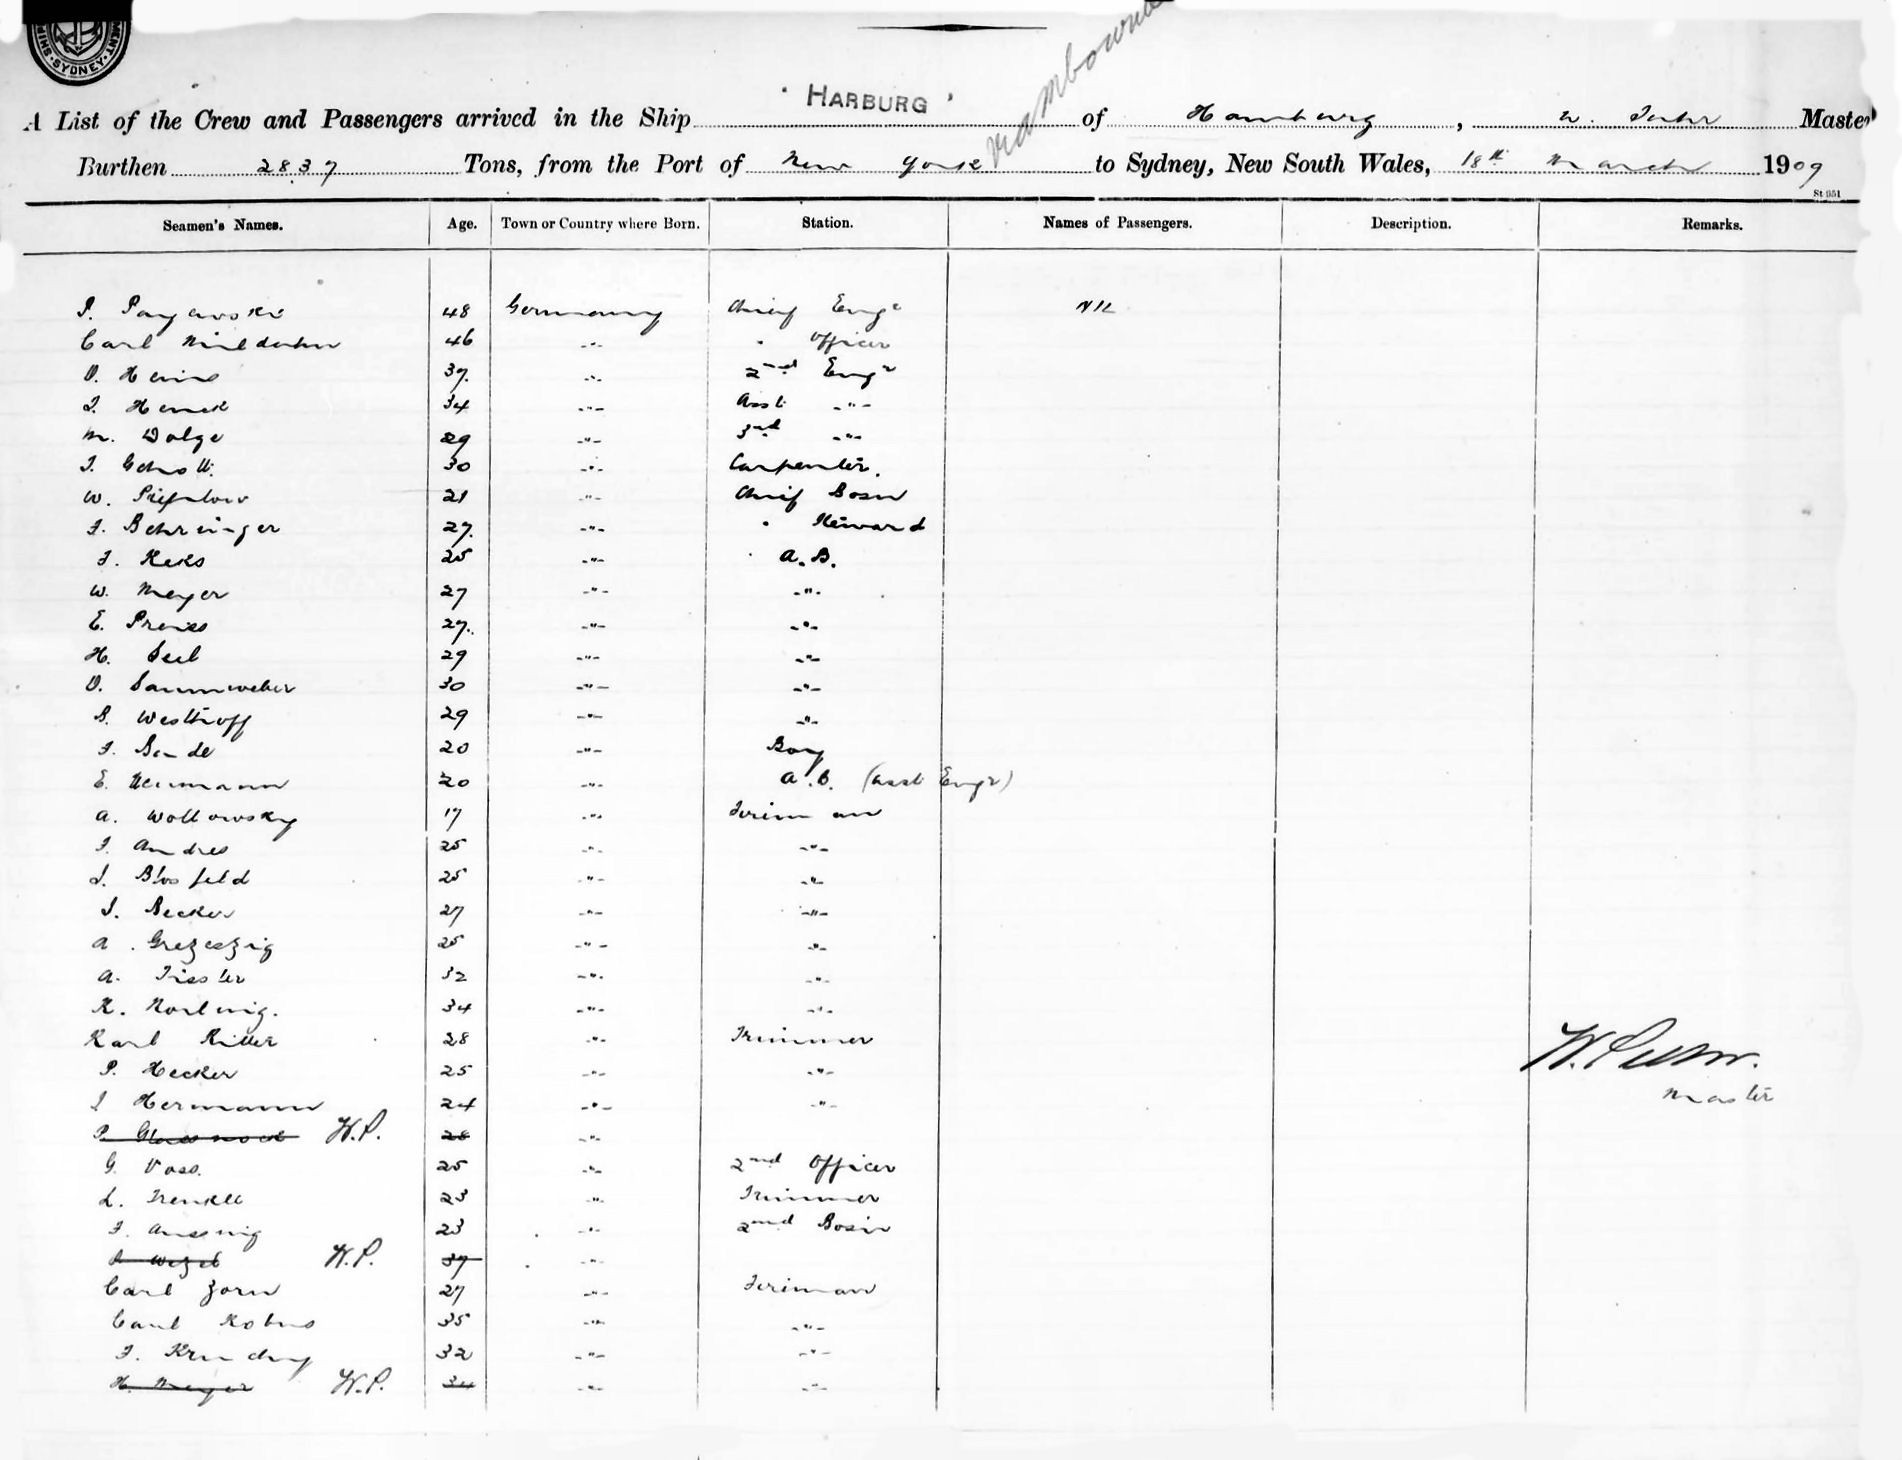 SYDNEY
via Melbourne
A List of the Crew and Passengers arrived in the Ship 'HARBURG' of Hamburg, W. Master
Burthen 2837 Tons, from the Port of New York to Sydney, New South Wales, 18th March 1909
St 951
Seamen's Names. Age. Town or Country where Born. Station. Names of Passengers. Description. Remarks.
P. 48 Germany Chief Engr Nil
Carl 46 -"- " Officer
O. Heins 37. -"- 2nd Engr
34 -"- Asst -"-
M. Dolge 29 -"- 3rd -"-
30 -"- Carpenter.
W. 21 -"- Chief Bosn
F. Behringer 27. -"- " Steward
F. Keks 25 -"- A.B.
W. Meyer 27 -"- -"-
E. Preiss 27. -"- -"-
H. Seel 29 -"- -"-
O. Saumweber 30 -"- -"-
B. Westhoff 29 -"- -"-
20 -"- Boy
E. Neumann 20 -"- A.B. (Asst Engr)
A. Wollowsky 17 -"- Fireman
F. Andres 25 -"- -"-
J. Blosfeld 25 -"- -"-
J. Becker 27 -"- -"-
A. 25 -"- -"-
A. 32 -"- -"-
K. 34 -"- -"-
Karl Ritter 28 -"- Trimmer
P. Hecker 25 -"- -"-
J Hermann 24 -"- -"-
P. W.P. 28 -"-
G. Voss. 25 -"- 2nd Officer
L. Trenkle 23 -"- Trimmer
F. Aussnig 23 -"- 2nd Bosn
Wezel W.P. 37 -"-
Carl Zorn 27 -"- Fireman
Carl Kobus 35 -"- -"-
F. 32 -"- -"-
H. Meyer W.P. 34 -"- -"-
W.
Master